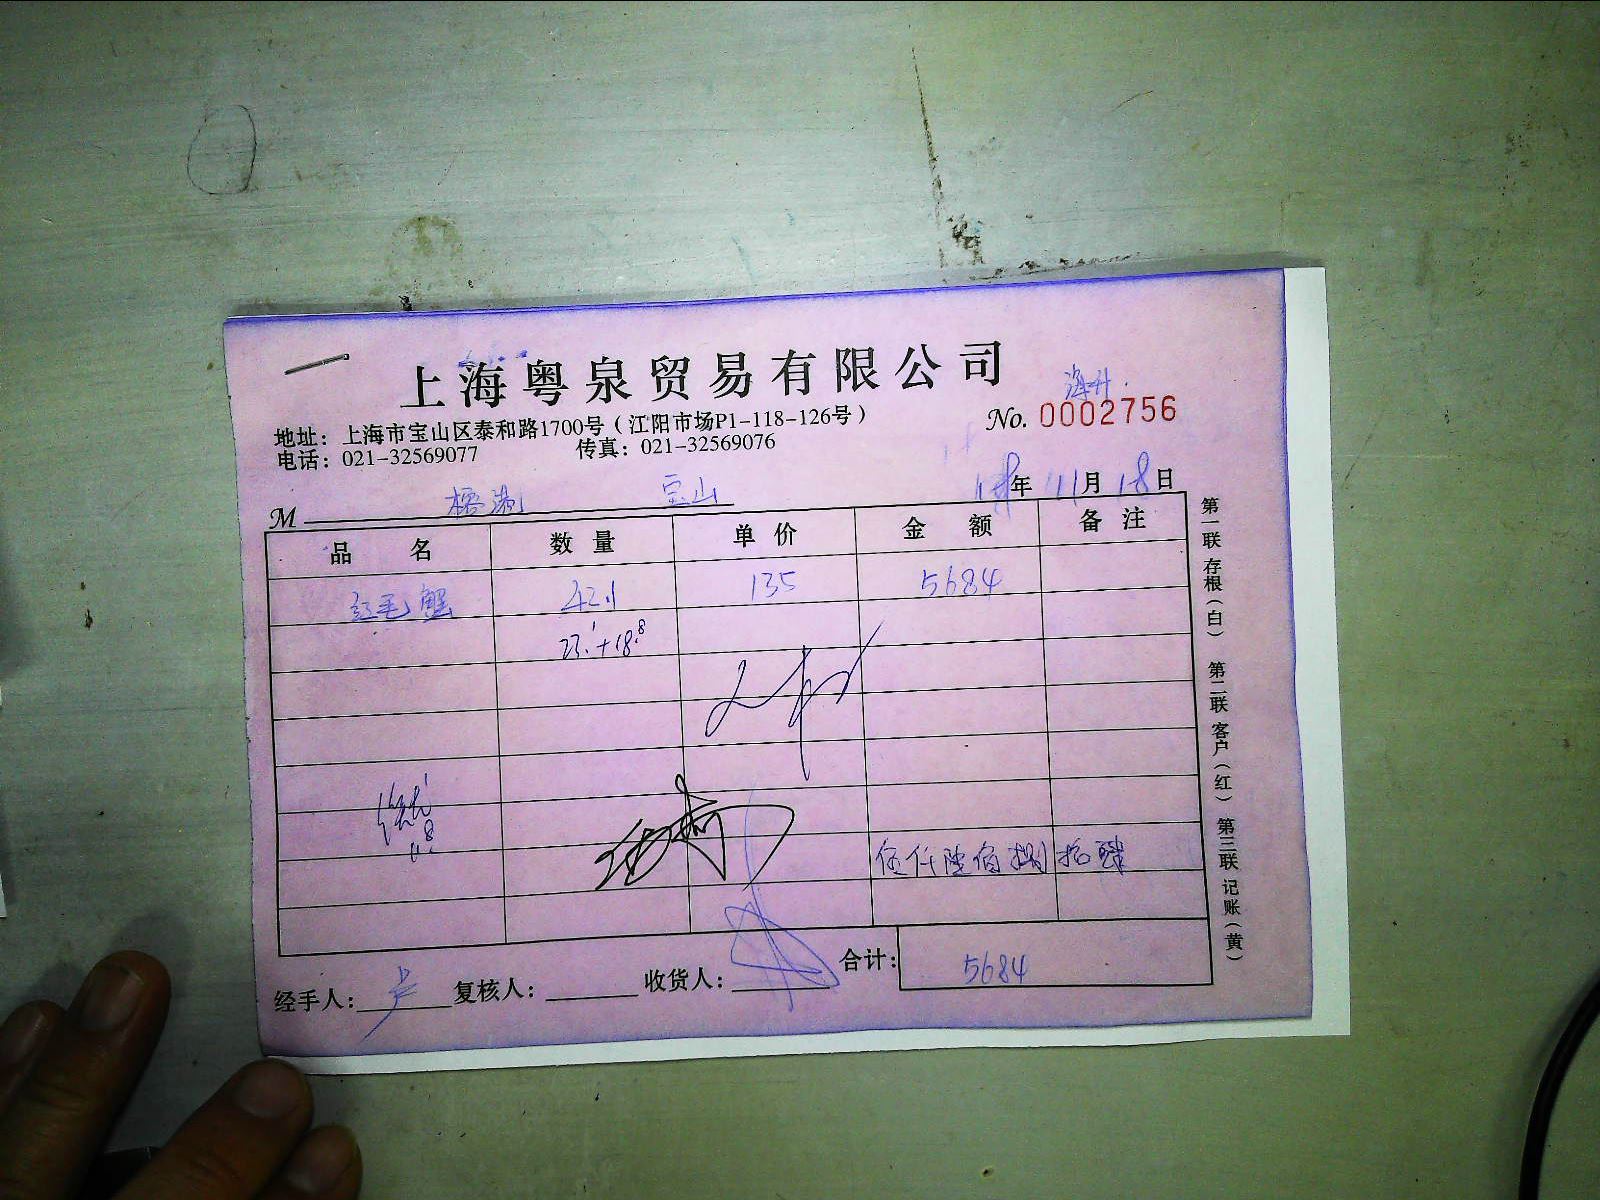 上海粤泉贸易有限公司
地址：上海市宝山区泰和路1700号（江阳市场P1-118-126号）
No. 0002756
电话：021-32569077 传真：021-32569076
18年11月18日
M 宝山
品名 数量 单价 金额 备注
红毛蟹 42.1 135 5684
23.1+18.8
伍仟陆佰捌拾肆
合计：5684
经手人： 复核人： 收货人：
第一联 存根（白） 第二联 客户（红） 第三联 记账（黄）